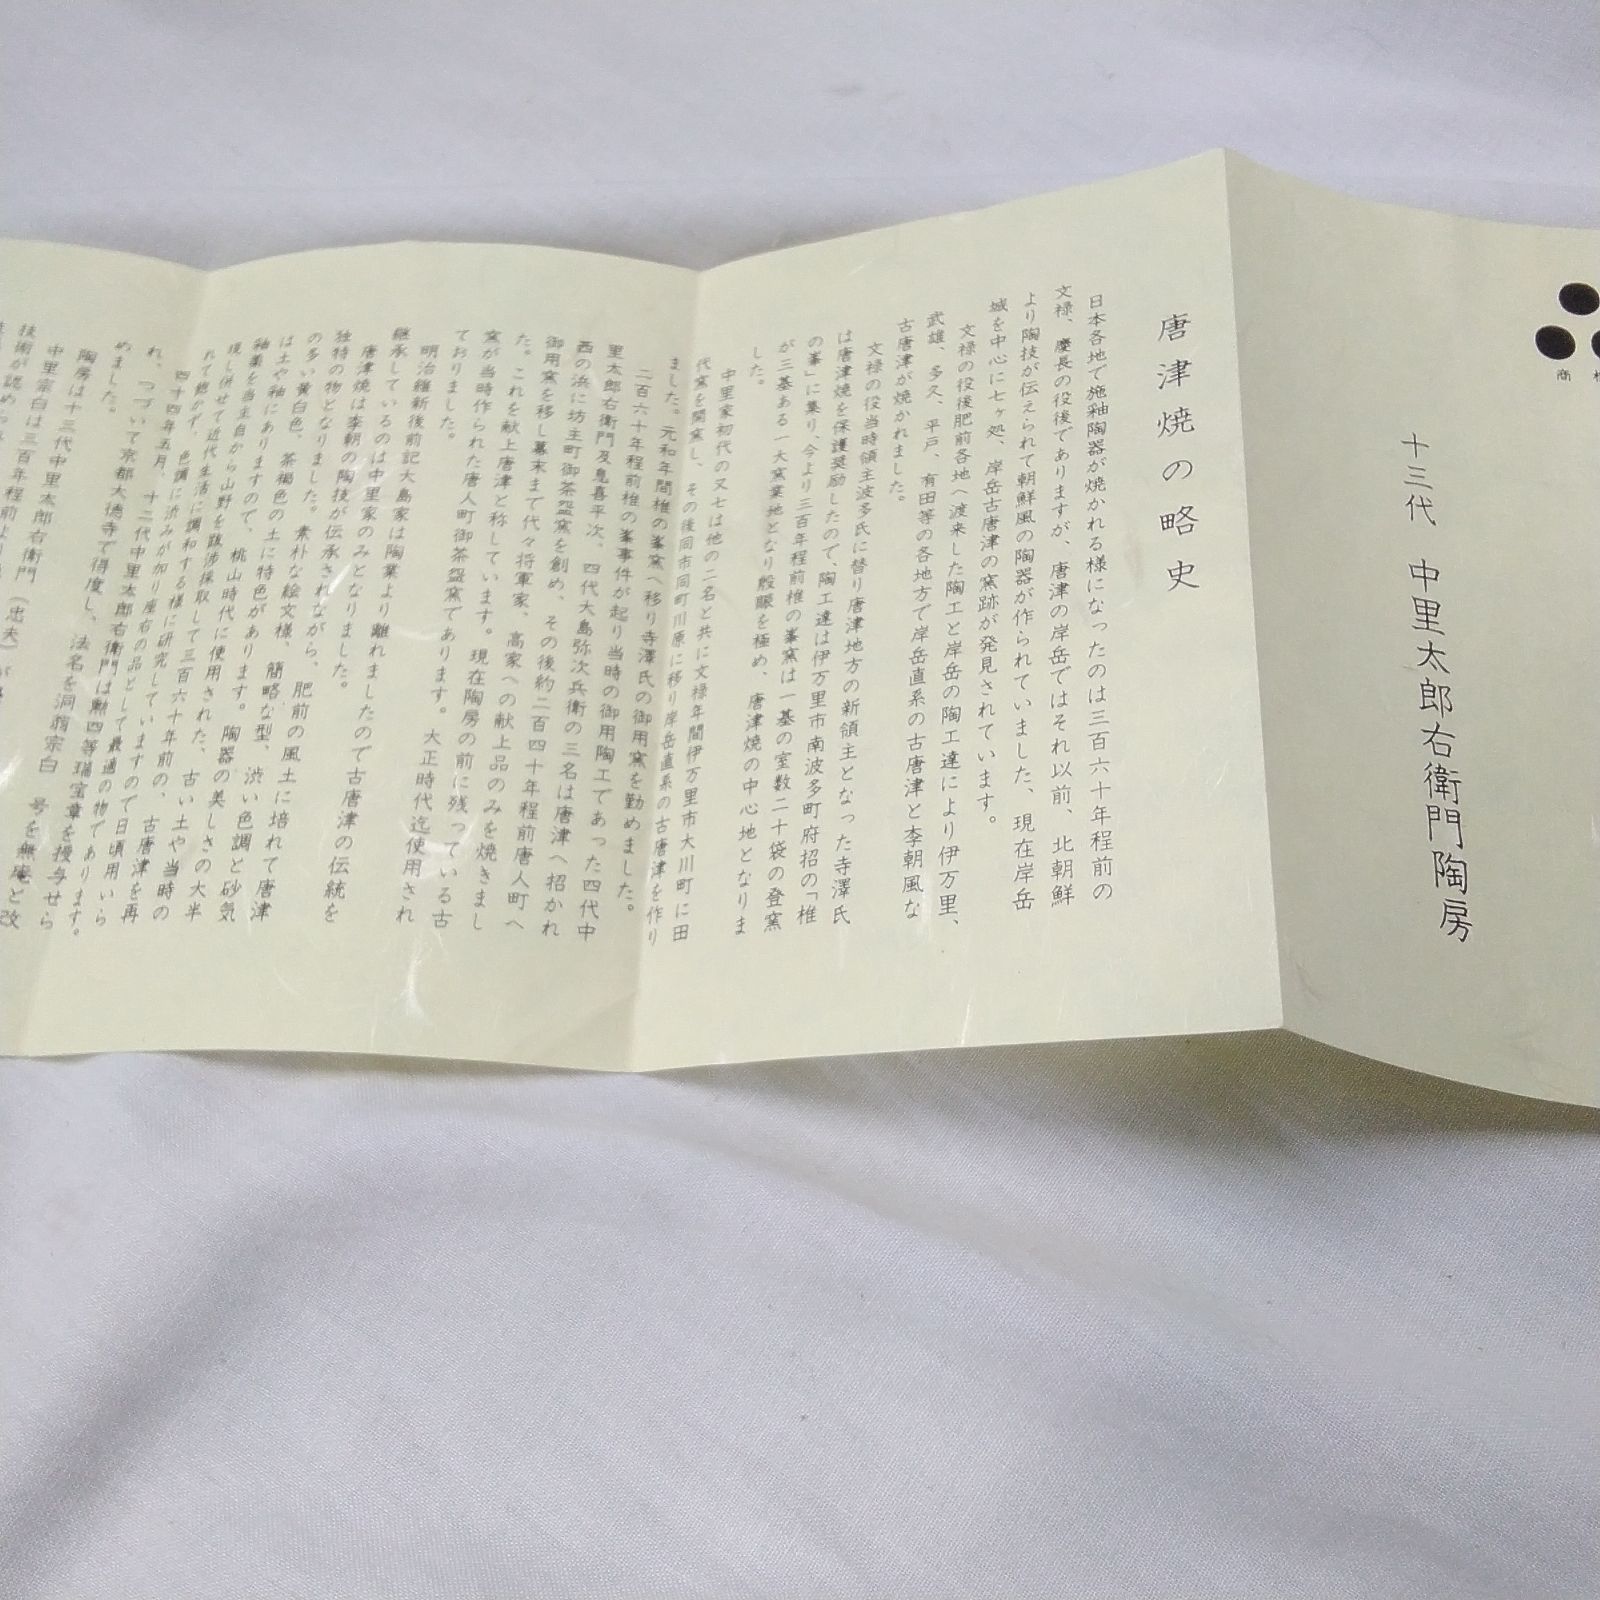 商
十三代 中里太郎右衛門陶房
唐津焼の略史
日本各地で施釉陶器が焼かれる様になったのは三百六十年程前の
文禄、慶長の役後でありますが、唐津の岸岳ではそれ以前、北朝鮮
より陶技が伝えられて朝鮮風の陶器が作られていました、現在岸岳
城を中心に七ヶ処、岸岳古唐津の窯跡が発見されています。
文禄の役後肥前各地へ渡来した陶工と岸岳の陶工達により伊万里、
武雄、多久、平戸、有田等の各地方で岸岳直系の古唐津と李朝風な
古唐津が焼かれました。
文禄の役当時領主波多氏に替り唐津地方の新領主となった寺澤氏
は唐津焼を保護奨励したので、陶工達は伊万里市南波多町府招の「椎
の峯」に集り、今より三百年程前椎の峯窯は一基の室数二十袋の登窯
が三基ある一大窯業地となり殷賑を極め、唐津焼の中心地となりま
した。
中里家初代の又七は他の二名と共に文禄年間伊万里市大川町に田
代窯を開窯し、その後同市同町川原に移り岸岳直系の古唐津を作り
ました。元和年間椎の峯窯へ移り寺澤氏の御用窯を勤めました。
二百六十年程前椎の峯事件が起り当時の御用陶工であった四代中
里太郎右衛門及息喜平次、四代大島弥次兵衛の三名は唐津へ招かれ
西の浜に坊主町御茶盌窯を創め、その後約二百四十年程前唐人町へ
御用窯を移し幕末まで代々将軍家、高家への献上品のみを焼きまし
た。これを献上唐津と称しています。現在陶房の前に残っている古
窯が当時作られた唐人町御茶盌窯であります。大正時代迄使用され
ておりました。
明治維新後前記大島家は陶業より離れましたので古唐津の伝統を
継承しているのは中里家のみとなりました。
唐津焼は李朝の陶技が伝承されながら、肥前の風土に培れて唐津
独特の物となりました。素朴な絵文様、簡略な型、渋い色調と砂気
の多い黄白色、茶褐色の土に特色があります。陶器の美しさの大半
は土や釉にありますので、桃山時代に使用された、古い土や当時の
釉薬を当主自から山野を跋渉採取して三百六十年前の、古唐津を再
現し併せて近代生活に調和する様に研究していますので日頃用いら
れて飽かず、色調に渋みが加り座右の品として最適の物であります。
四十四年五月、十二代中里太郎右衛門は勲四等瑞宝章を授与せら
れ、つづいて京都大徳寺で得度し、法名を洞翁宗白 号を無庵と改
めました。
陶房は十三代中里太郎右衛門（忠夫）が
中里宗白は三百年程前より
技術が認められ